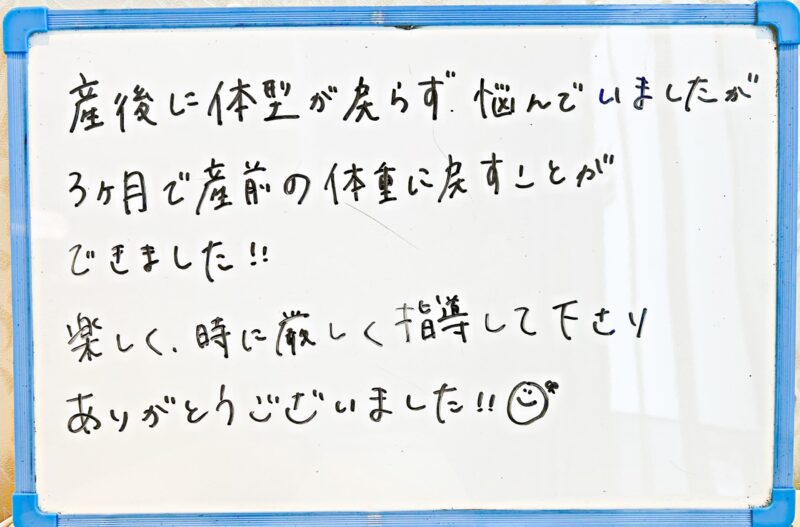 産後に体型が戻らず、悩んでいましたが
3ヶ月で産前の体重に戻すことが
できました!!
楽しく、時に厳しく指導して下さり
ありがとうございました!!